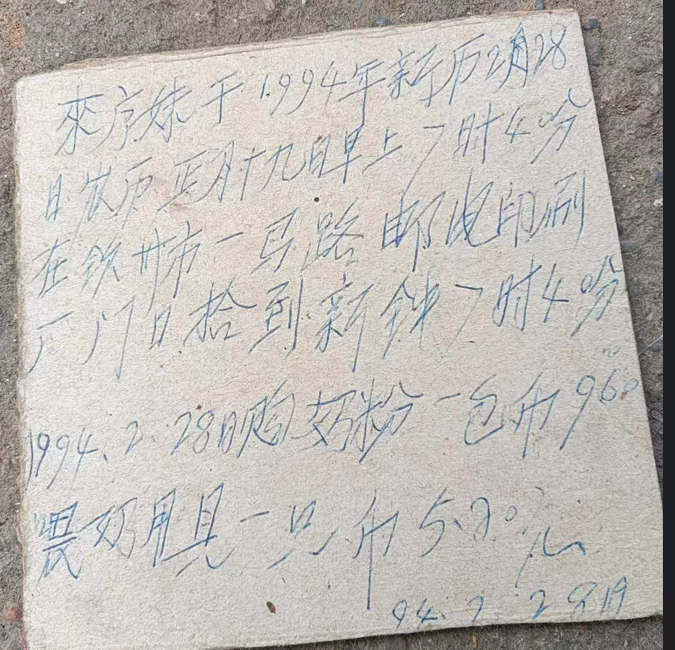 來序妹于1994年新历2月28
日农历正月十九日早上7时40分
在钦州市一马路邮电印刷
厂门口拾到新钟7时40分
1994.2.28日购奶粉一包币960
喂奶用具一只币5.20元
94.2.28日